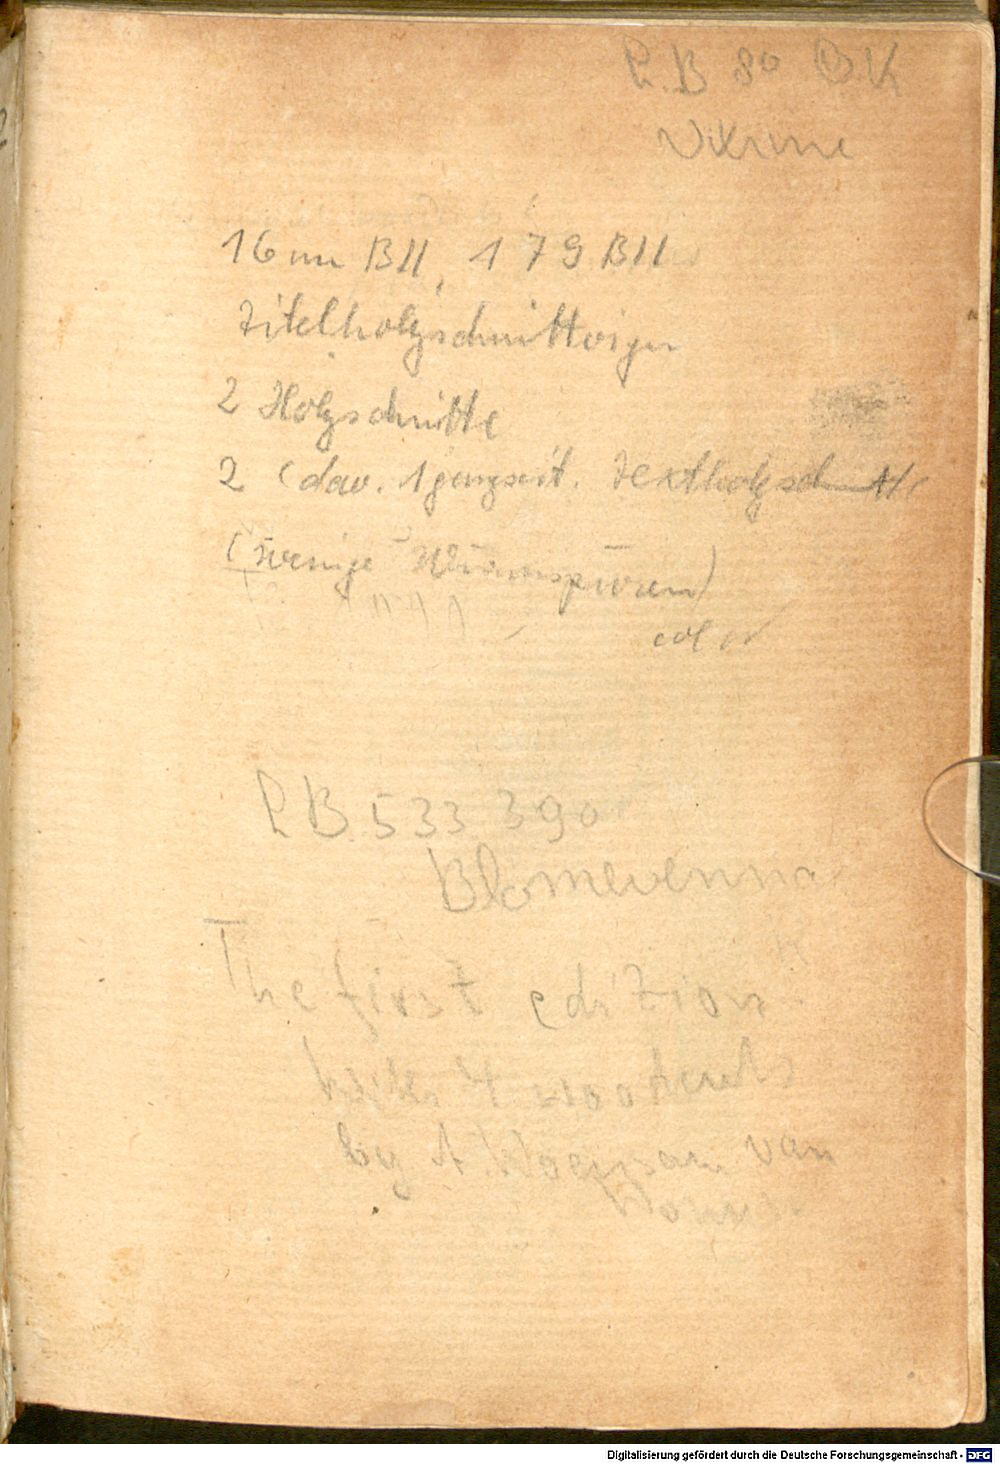 P.B 80 B.K
16 nn Bll, 179 Bll
Titelholzschnitt
2 Holzschnitte
2 (dav. 1 ganzseit. Textholzschnitte
(wenige Wurmspuren)
P.B. 533 390
Blomevenna
The first edition
with 4 woodcuts
by A. Woensam van
Worms.
Digitalisierung gefördert durch die Deutsche Forschungsgemeinschaft - DFG